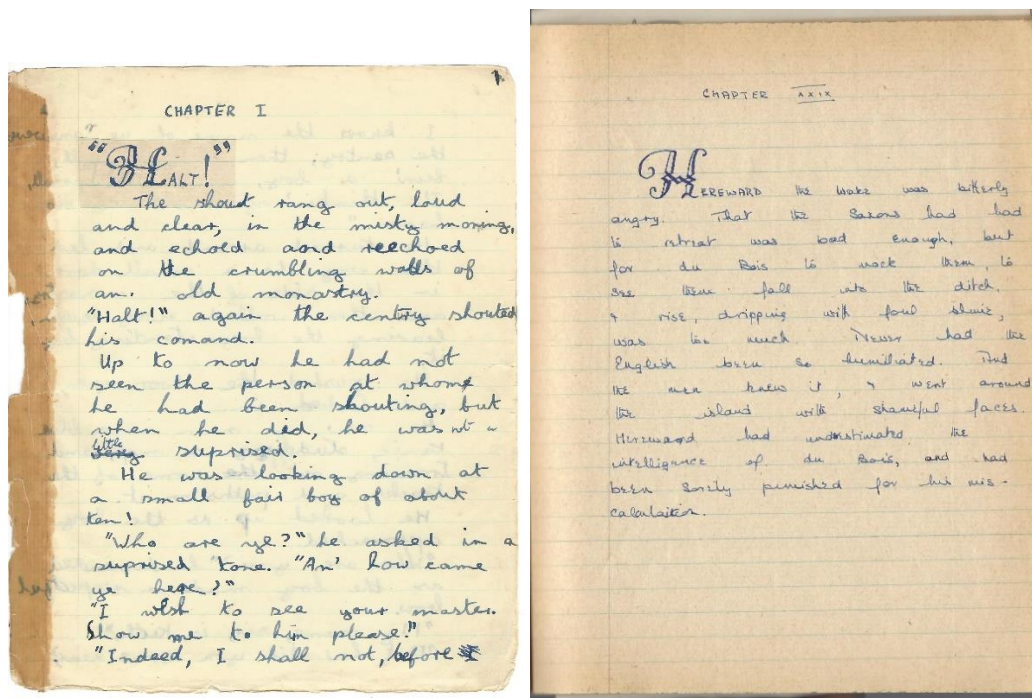 1
CHAPTER I
"HALT!"
The shout rang out, loud
and clear, in the misty morning,
and echoed aond reechoed
on the crumbling walls of
an. old monastry.
"Halt!" again the centry shouted
his comand.
Up to now he had not
seen the person at whom
he had been shouting, but
when he did, he was not a
little suprised.
He was looking down at
a small fair boy of about
ten!
"Who are ye?" he asked in a
suprised tone. "An' how came
ye here?"
"I wish to see your master.
Show me to him please!"
"Indeed, I shall not, before I
CHAPTER XXIX
HEREWARD the wake was bitterly
angry. That the Saxons had had
to retreat was bad enough, but
for du Bois to mock them, to
see them fall into the ditch,
& rise, dripping with foul slime,
was too much. Never had the
English been so humiliated. And
the men knew it, & went around
the island with shameful faces.
Hereward had understimated the
intelligence of du Bois, and had
been sorely punished for his mis-
calculation.